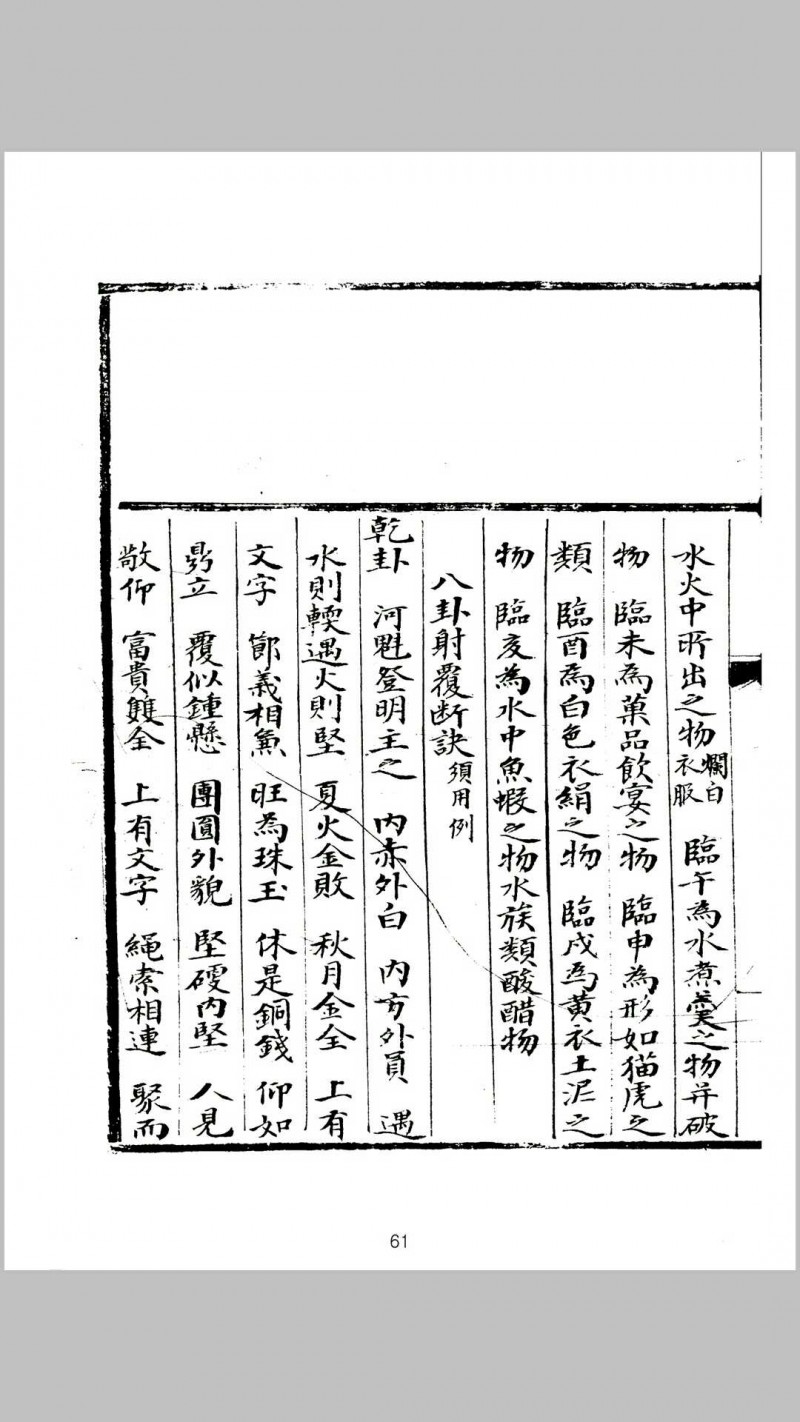 水火中所出之物爛白衣服 臨午為水煮羹之物并破
物 臨未為菓品飲宴之物 臨申為形如猫虎之
類 臨酉為白色衣絹之物 臨戌為黃衣土泥之
物 臨亥為水中魚蝦之物水族類酸醋物
八卦射覆断訣須用例
乾卦 河魁登明主之 内赤外白 内方外員 遇
水則輭遇火則堅 夏火金敗 秋月金全 上有
文字 節義相兼 旺為珠玉 休是銅錢 仰如
鼎立 覆似鍾懸 團圓外貌 堅硬内堅 人見
敬仰 富貴雙全 上有文字 繩索相連 聚而
61